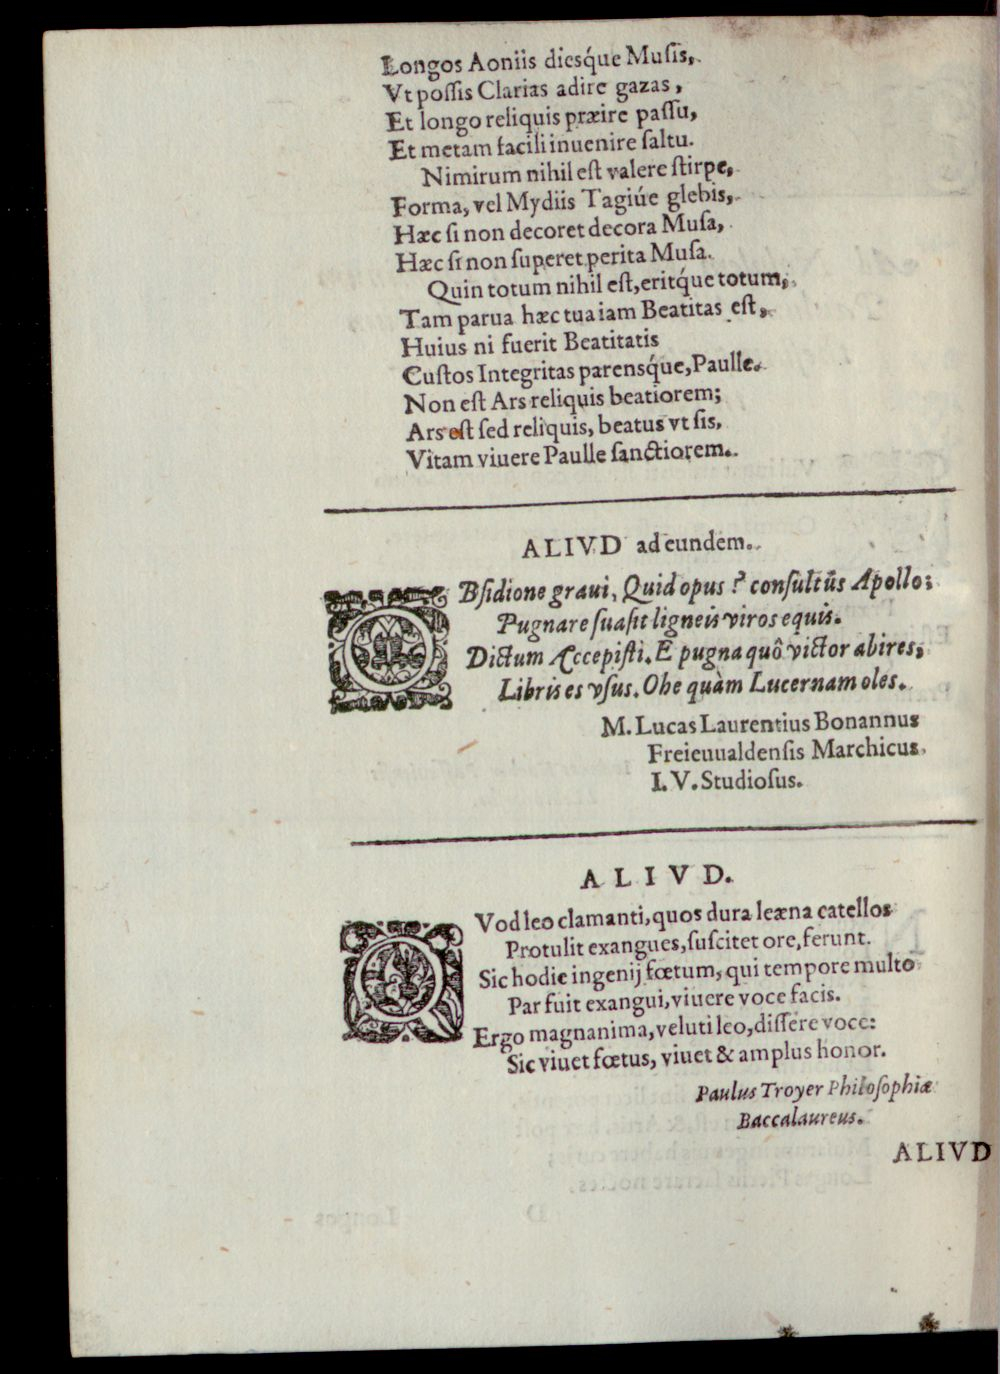 Longos Aoniis diesq́ue Muſis,
Vt poſſis Clarias adire gazas,
Et longo reliquis præire paſſu,
Et metam facili inuenire ſaltu.
Nimirum nihil eſt valere ſtirpe,
Forma, vel Mydiis Tagiúe glebis,
Hæc ſi non decoret decora Muſa,
Hæc ſi non ſuperet perita Muſa.
Quin totum nihil eſt, eritq́ue totum,
Tam parua hæc tua iam Beatitas eſt,
Huius ni fuerit Beatitatis
Cuſtos Integritas parensq́ue, Paulle.
Non eſt Ars reliquis beatiorem;
Ars eſt ſed reliquis, beatus vt ſis,
Vitam viuere Paulle ſanctiorem.
ALIVD ad eundem.
OBſidione graui, Quid opus? conſultus Apollo;
Pugnare ſuaſit ligneis viros equis.
Dictum Accepiſti. E pugna quô victor abires,
Libris es vſus. Ohe quàm Lucernam oles.
M. Lucas Laurentius Bonannus
Freieuualdenſis Marchicus,
I. V. Studioſus.
ALIVD.
QVod leo clamanti, quos dura leæna catellos
Protulit exangues, ſuſcitet ore, ferunt.
Sic hodie ingenij fœtum, qui tempore multo
Par fuit exangui, viuere voce facis.
Ergo magnanima, veluti leo, diſſere voce:
Sic viuet fœtus, viuet & amplus honor.
Paulus Troyer Philoſophiæ
Baccalaureus.
ALIVD